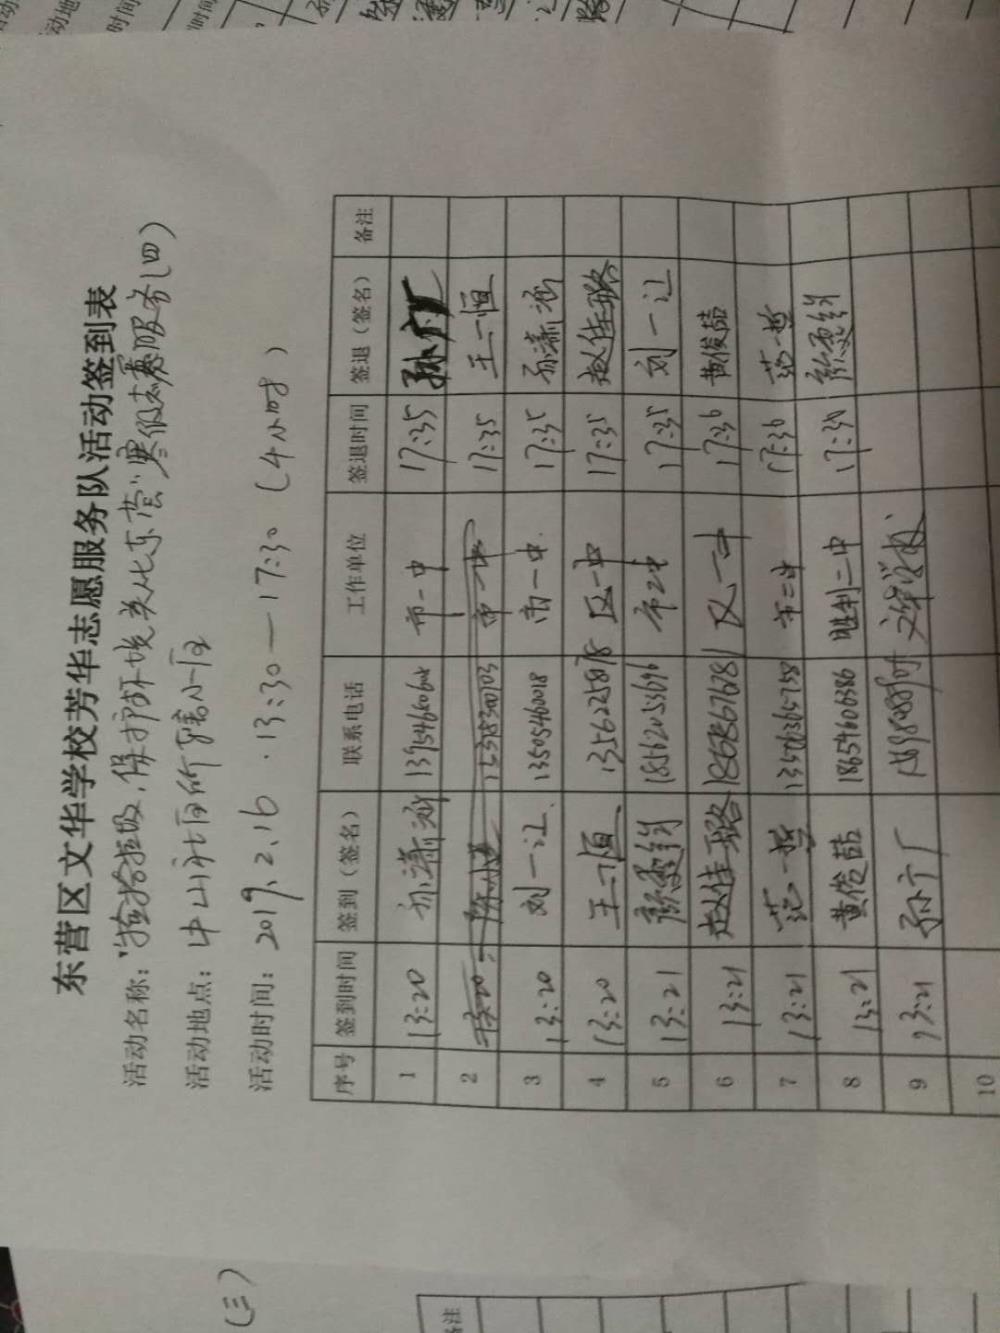 东营区文华学校芳华志愿服务队活动签到表
活动名称："捡拾垃圾，保护环境，美化东营"寒假志愿服务（四）
活动地点：中山社区所辖小区
活动时间：2019.2.16 . 13:30 — 17:30 （4小时）
序号 签到时间 签到（签名） 联系电话 工作单位 签退时间 签退（签名） 备注
1 13:20 孙潇涵 市一中 17:35
2 13:20 市一中 17:35 王一恒
3 13:20 刘一让 13505460018 市一中 17:35 孙潇涵
4 13:20 王一恒 区一中 17:35 赵佳璐
5 13:21 市二中 17:35 刘一让
6 13:21 赵佳璐 18678676781 区一中 17:36 黄俊喆
7 13:21 范一哲 市二中 17:36 范一哲
8 13:21 黄俊喆 18654606386 胜利二中 17:36
9 13:21 孙宁广 文华学校
10
（三）
备注